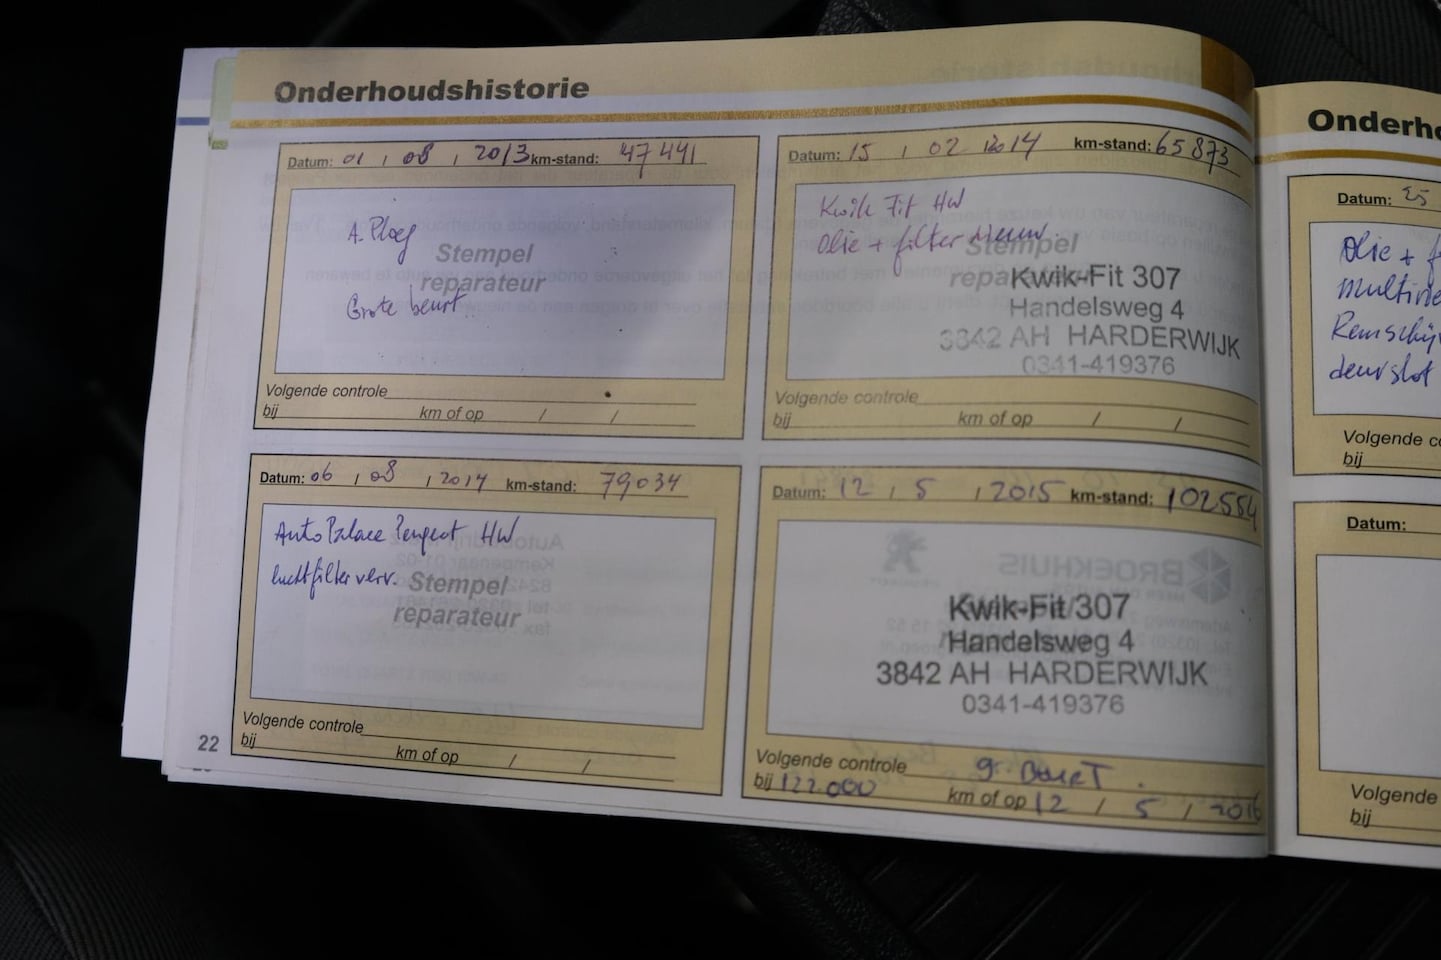 Onderhoudshistorie
Datum: 01 / 08 / 2013 km-stand: 47441
A. Ploeg
Stempel
reparateur
Grote beurt
Volgende controle
bij km of op / /
Datum: 15 / 02 2014 km-stand: 65873
Kwik Fit HW
Olie + filter nieuw.
Stempel
Kwik-Fit 307
Handelsweg 4
3842 AH HARDERWIJK
0341-419376
Volgende controle
bij km of op / /
Datum: 06 / 08 / 2014 km-stand: 79034
Auto Palace Peugeot HW
luchtfilter verv.
Stempel
reparateur
Volgende controle
bij km of op / /
22
Datum: 12 / 5 / 2015 km-stand: 102554
Kwik-Fit 307
Handelsweg 4
3842 AH HARDERWIJK
0341-419376
Volgende controle gr. Beurt
bij 122.000 km of op 12 / 5 / 2016
Onderho
Datum: 25
Olie + f
multirie
Remschij
deurslot
Volgende co
bij
Datum:
Volgende
bij